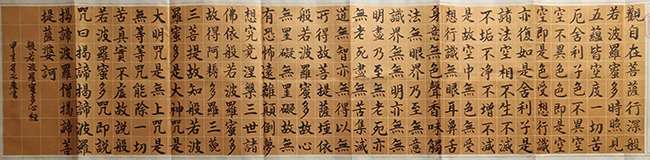 觀自在菩薩行深般
若波羅蜜多時照見
五蘊皆空度一切苦
厄舍利子色不異空
空不異色色即是空
空即是色受想行識
亦復如是舍利子是
諸法空相不生不滅
不垢不淨不增不減
是故空中無色無受
想行識無眼耳鼻舌
身意無色聲香味觸
法無眼界乃至無意
識界無無明亦無無
明盡乃至無老死亦
無老死盡無苦集滅
道無智亦無得以無
所得故菩提薩埵依
般若波羅蜜多故心
無罣礙無罣礙故無
有恐怖遠離顛倒夢
想究竟涅槃三世諸
佛依般若波羅蜜多
故得阿耨多羅三藐
三菩提故知般若波
羅蜜多是大神咒是
大明咒是無上咒是
無等等咒能除一切
苦真實不虛故說般
若波羅蜜多咒即說
咒曰揭諦揭諦波羅
揭諦波羅僧揭諦菩
提薩婆訶
般若波羅蜜多心經